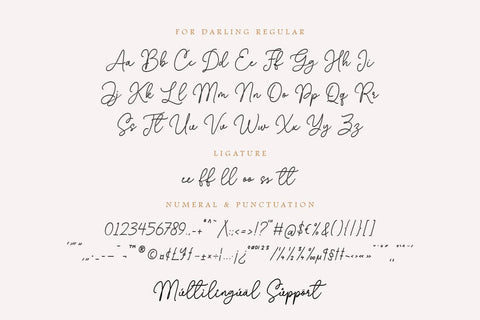 FOR DARLING REGULAR
Aa Bb Cc Dd Ee Ff Gg Hh Ii
Jj Kk Ll Mm Nn Oo Pp Qq Rr
Ss Tt Uu Vv Ww Xx Yy Zz
LIGATURE
ee ff ll oo ss tt
NUMERAL & PUNCTUATION
0123456789.,-+"^~/\:;<=>!?'"#@$€%&*(){}|[]
Múltilingúal Súpport